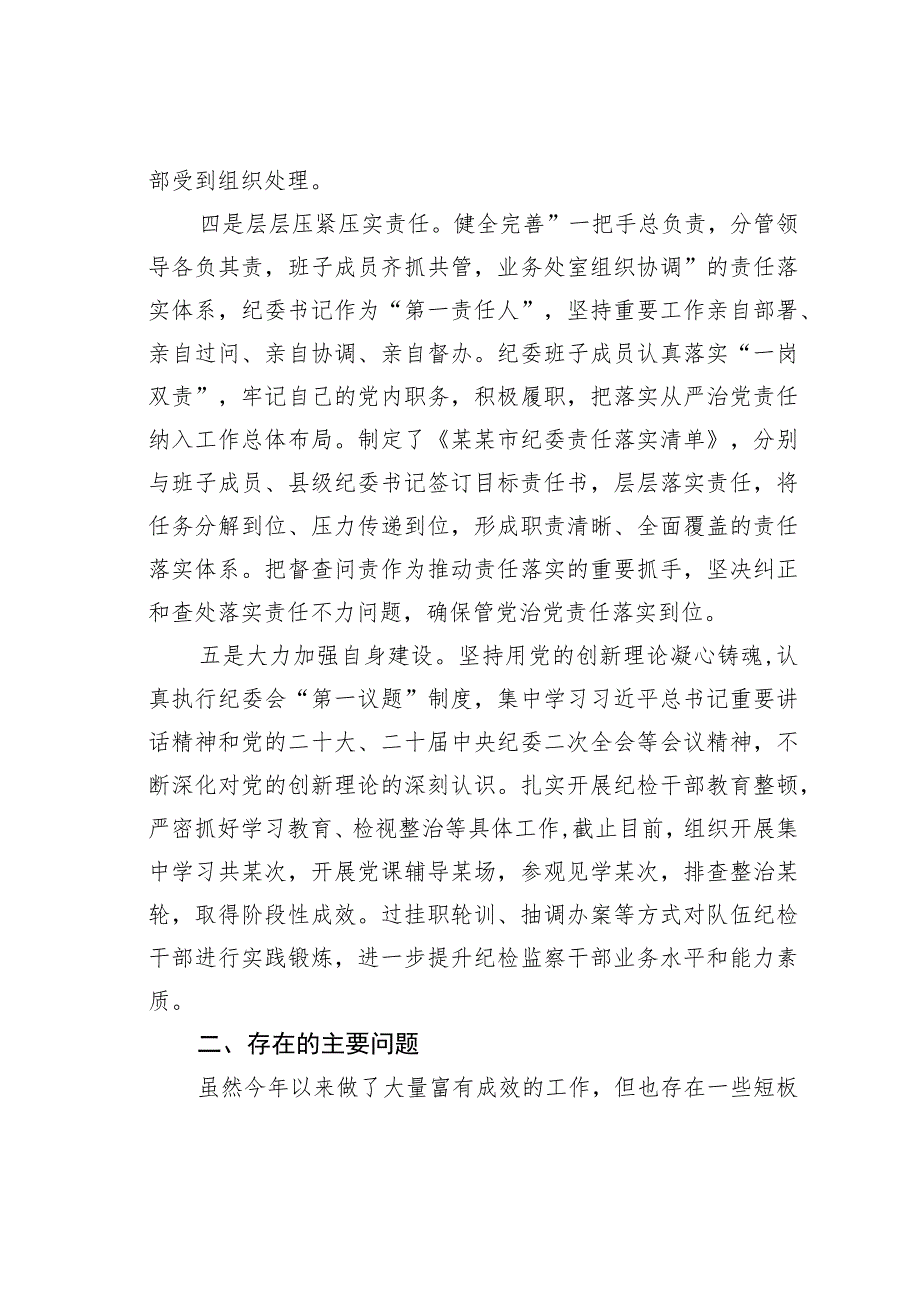 部受到组织处理。
四是层层压紧压实责任。健全完善”一把手总负责，分管领
导各负其责，班子成员齐抓共管，业务处室组织协调”的责任落
实体系，纪委书记作为“第一责任人”，坚持重要工作亲自部署、
亲自过问、亲自协调、亲自督办。纪委班子成员认真落实“一岗
双责”，牢记自己的党内职务，积极履职，把落实从严治党责任
纳入工作总体布局。制定了《某某市纪委责任落实清单》，分别
与班子成员、县级纪委书记签订目标责任书，层层落实责任，将
任务分解到位、压力传递到位，形成职责清晰、全面覆盖的责任
落实体系。把督查问责作为推动责任落实的重要抓手，坚决纠正
和查处落实责任不力问题，确保管党治党责任落实到位。
五是大力加强自身建设。坚持用党的创新理论凝心铸魂,认
真执行纪委会“第一议题”制度，集中学习习近平总书记重要讲
话精神和党的二十大、二十届中央纪委二次全会等会议精神，不
断深化对党的创新理论的深刻认识。扎实开展纪检干部教育整顿，
严密抓好学习教育、检视整治等具体工作,截止目前，组织开展集
中学习共某次，开展党课辅导某场，参观见学某次，排查整治某
轮，取得阶段性成效。过挂职轮训、抽调办案等方式对队伍纪检
干部进行实践锻炼，进一步提升纪检监察干部业务水平和能力素
质。
二、存在的主要问题
虽然今年以来做了大量富有成效的工作，但也存在一些短板